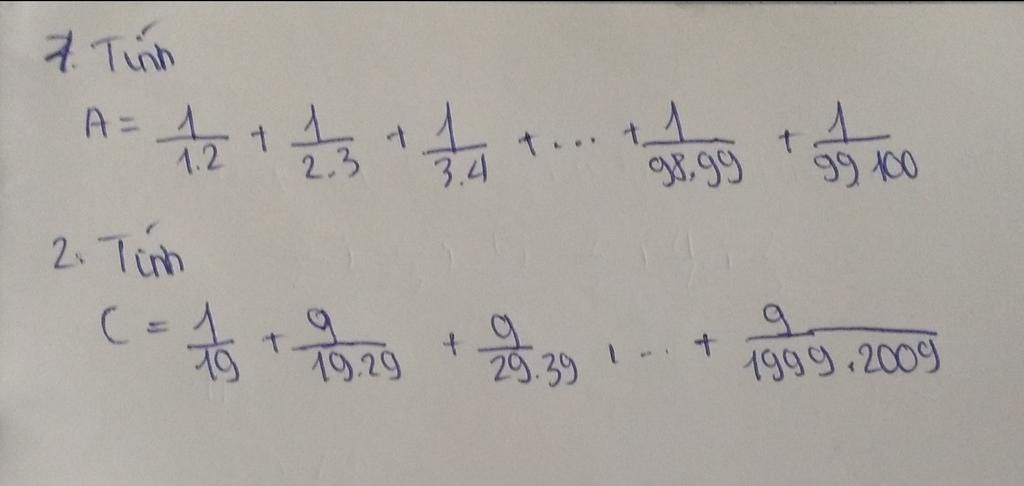 1. Tính
A = 1/1.2 + 1/2.3 + 1/3.4 + ... + 1/98.99 + 1/99.100
2. Tính
C = 1/19 + 9/19.29 + 9/29.39 + ... + 9/1999.2009